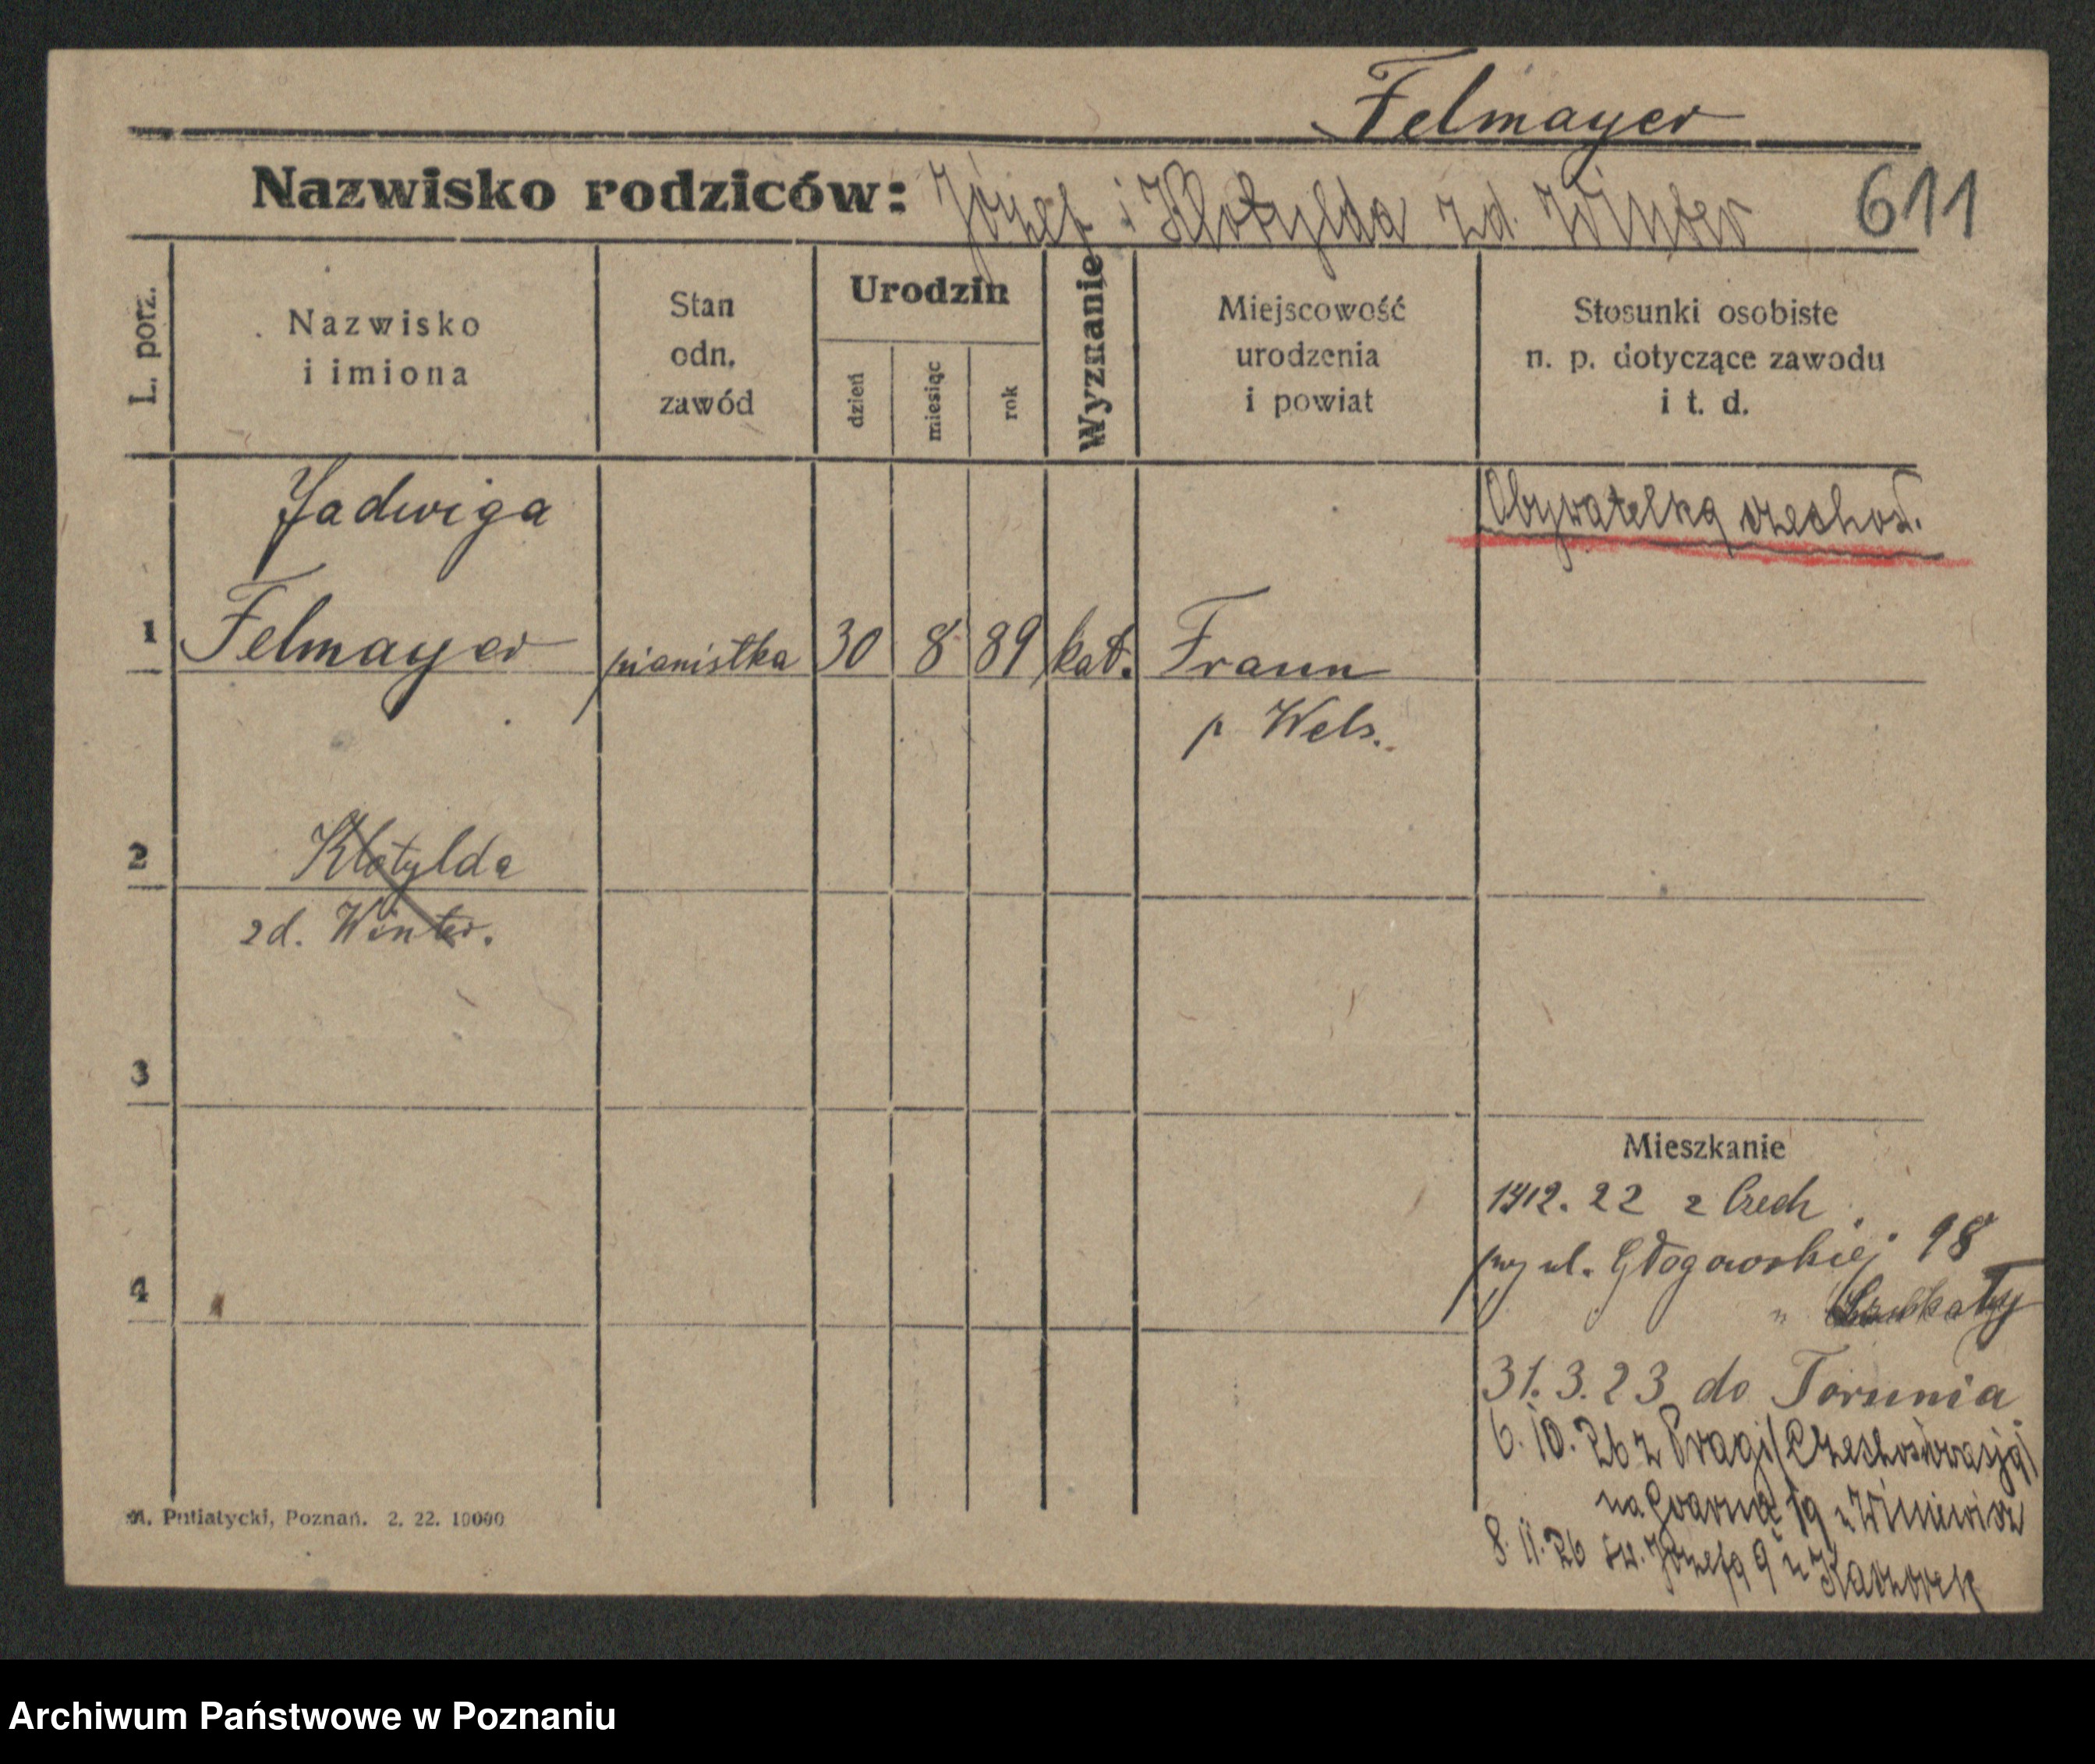 Felmayer
Nazwisko rodziców: Józef i Klotylda zd. Winter 611
L. porz.
Nazwisko i imiona
Stan odn. zawód
Urodzin
dzień
miesiąc
rok
Wyznanie
Miejscowość urodzenia i powiat
Stosunki osobiste n. p. dotyczące zawodu i t. d.
Jadwiga
Obywatelka czechosł.
1 Felmayer pianistka 30 8 89 kat. Fraun
p Wels.
2 Klotylda
zd. Winter.
3
Mieszkanie
22 z Czech
przy ul. Głogowskiej 98
4
31.3.23 do Torunia
6.10.26 z Pragi (Czechosłowacja)
na 19 u
8.11.26 św. Józefa 9 u Kaczorek
M. Putiatycki, Poznań. 2. 22. 10000
Archiwum Państwowe w Poznaniu